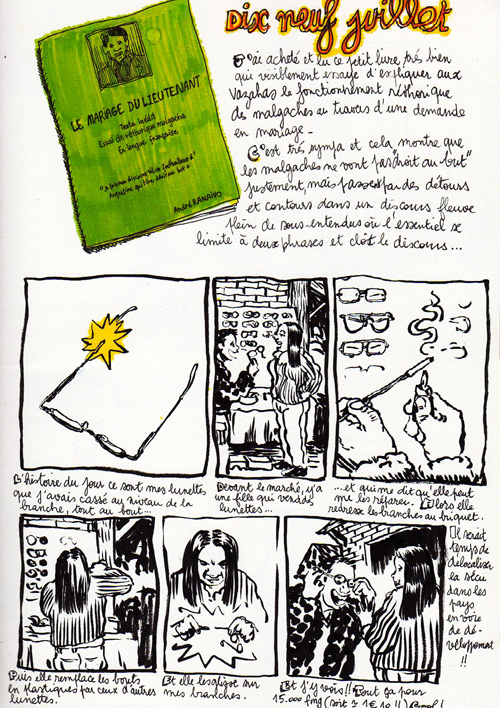 Dix neuf juillet
LE MARIAGE DU LIEUTENANT
Texte inédit
Essai de réthorique malgache
En langue française
André RANAIVO
J'ai acheté et lu ce petit livre, très bien
qui visiblement essaye d'expliquer aux
Vazahas le fonctionnement réthorique
des malgaches au travers d'une demande
en mariage -
C'est très sympa et cela montre que
les malgaches ne vont pas "droit au but"
justement, mais passent par des détours
et contours dans un discours fleuve
plein de sous-entendus où l'essentiel se
limite à deux phrases et clôt le discours...
L'histoire du jour ce sont mes lunettes
que j'avais cassé au niveau de la
branche, tout au bout...
Devant le marché, y'a
une fille qui vend des
lunettes...
...et qui me dit qu'elle peut
me les réparer. Et alors elle
redresse les branches au briquet.
Puis elle remplace les bouts
en plastiques par ceux d'autres
lunettes.
Et elle les glisse sur
mes branches.
Et j'y vois!! Tout ça pour
15.000 fmg (soit ≈ 1€10!!) Cool!
Il serait
temps de
délocaliser
la sécu
dans les
pays
en voie
de dé-
veloppement
!!